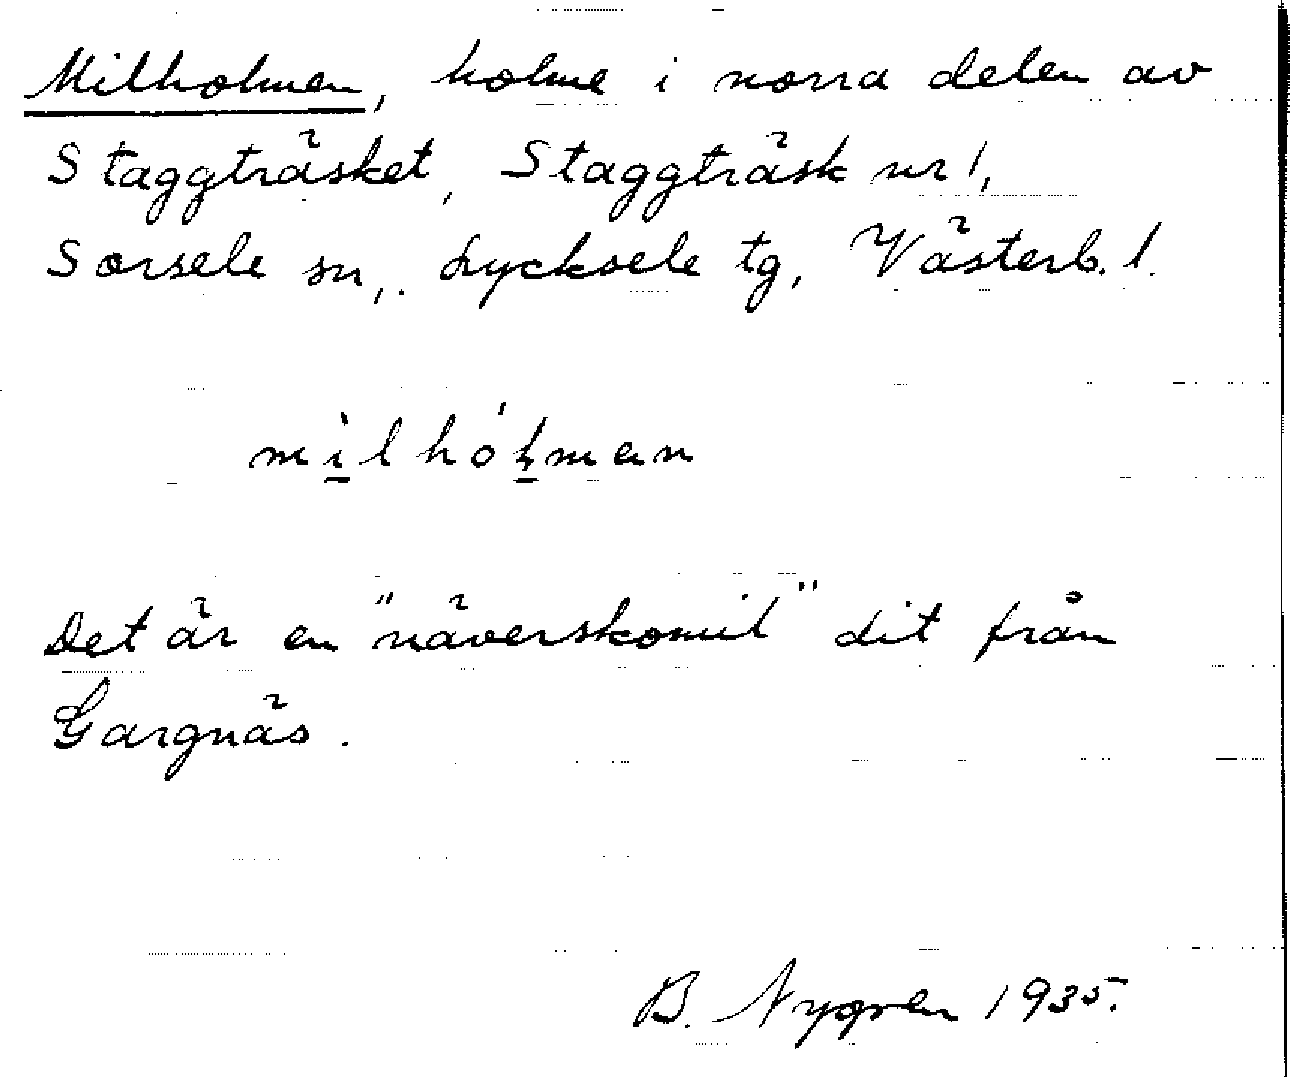 Milholmen, holme i norra delen av
Staggträsket, Staggträsk nr 1,
Sorsele sn, Lycksele tg, Västerb. l.
mìlhólman
Det är en "näverskomil" dit från
Gargnäs.
B. Nygren 1935.